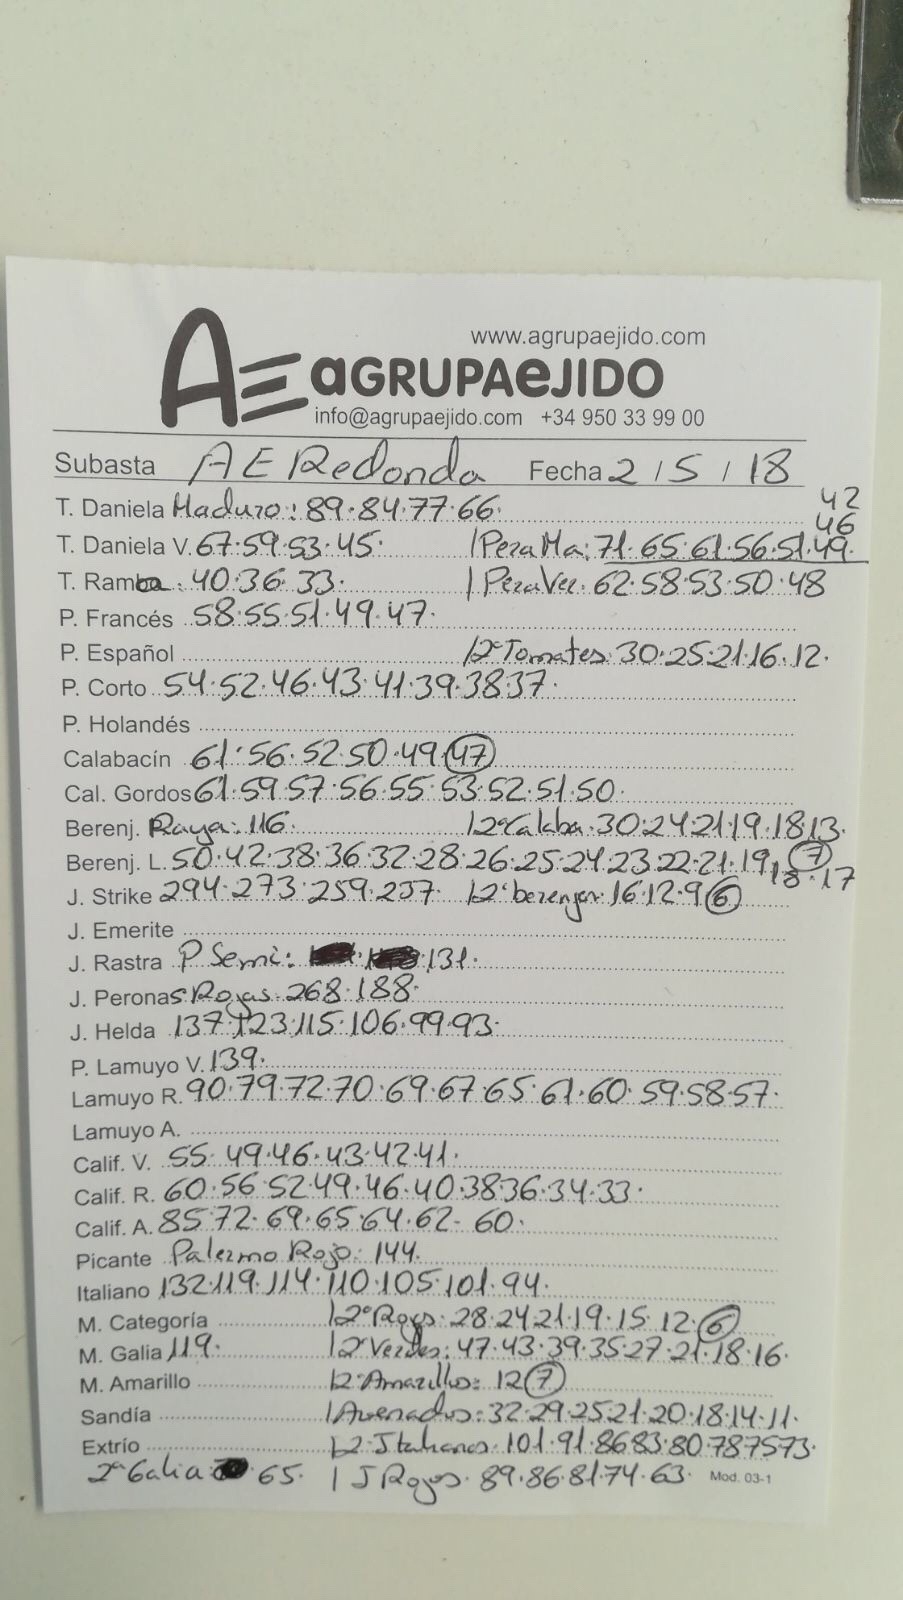 www.agrupaejido.com
AE aGRUPAeJIDO
info@agrupaejido.com +34 950 33 99 00
Subasta AE Redonda Fecha 2 / 5 / 18
42
T. Daniela Maduro: 89.84.77.66. 46
T. Daniela V. 67.59.53.45. | Pera Ma: 71.65.61.56.51.49.
T. Rama: 40.36.33. | Pera Ver. 62.58.53.50.48
P. Francés 58.55.51.49.47.
P. Español | 2ª Tomates. 30.25.21.16.12.
P. Corto 54.52.46.43.41.39.38.37.
P. Holandés
Calabacín 61.56.52.50.49.47
Cal. Gordos 61.59.57.56.55.53.52.51.50.
Berenj. Raya: 116. | 2ª Calaba. 30.24.21.19.18.13.
Berenj. L. 50.42.38.36.32.28.26.25.24.23.22.21.19. 7
18.17
J. Strike 294.273.259.257. | 2ª berenjen. 16.12.9 6
J. Emerite
J. Rastra P Semi: 131.
J. Peronas Rojas. 268.188.
J. Helda 137.123.115.106.99.93.
P. Lamuyo V. 139.
Lamuyo R. 90.79.72.70.69.67.65.61.60.59.58.57.
Lamuyo A.
Calif. V. 55.49.46.43.42.41.
Calif. R. 60.56.52.49.46.40.38.36.34.33.
Calif. A. 85.72.69.65.64.62-60.
Picante Palermo Rojo. 144.
Italiano 132.119.114.110.105.101.94.
M. Categoría | 2ª Rojos. 28.24.21.19.15.12. 6
M. Galia 119. | 2ª Verdes: 47.43.39.35.27.21.18.16.
M. Amarillo | 2ª Amarillos: 12 7
Sandía | Asenados: 32.29.25.21.20.18.14.11.
Extrío | 2. Italianos. 101.91.86.83.80.78.75.73.
2ª Galia 65. | J Rojos. 89.86.81.74.63. Mod. 03-1